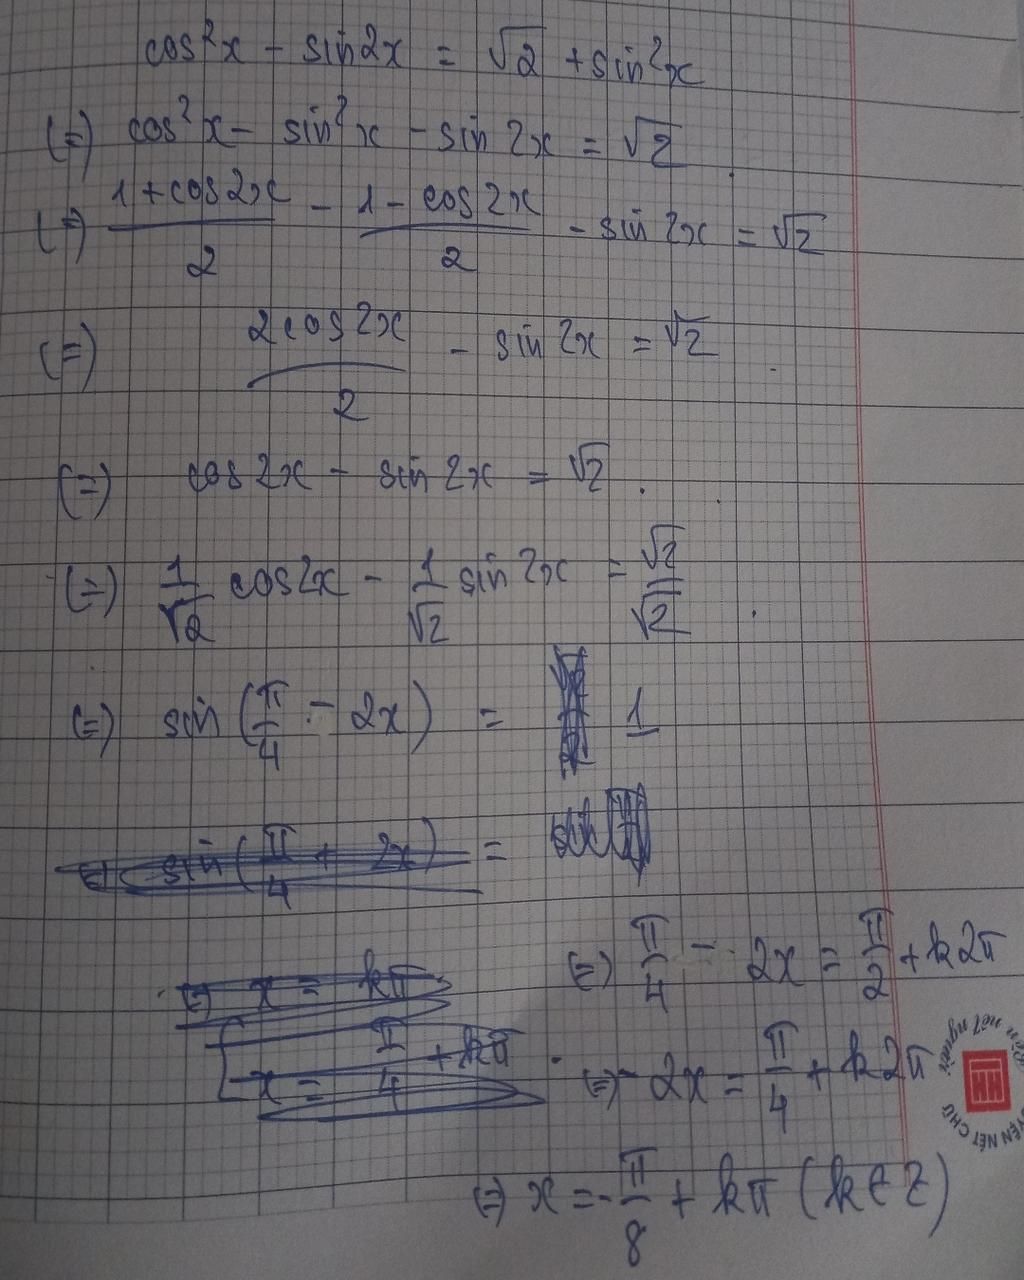 cos²x - sin2x = √2 + sin²x
(=) cos²x - sin²x - sin 2x = √2
(=) (1 + cos2x)/2 - (1 - cos2x)/2 - sin 2x = √2
(=) (2cos2x)/2 - sin 2x = √2
(=) cos2x - sin 2x = √2
(=) 1/√2 cos2x - 1/√2 sin 2x = √2/√2
(=) sin(π/4 - 2x) = 1
(=) sin(π/4 + 2x) =
(=) x = kπ
x = π/4 + kπ
(=) π/4 - 2x = π/2 + k2π
(=) -2x = π/4 + k2π
(=) x = -π/8 + kπ (k ∈ Z)
nết người
NÉT CHỮ